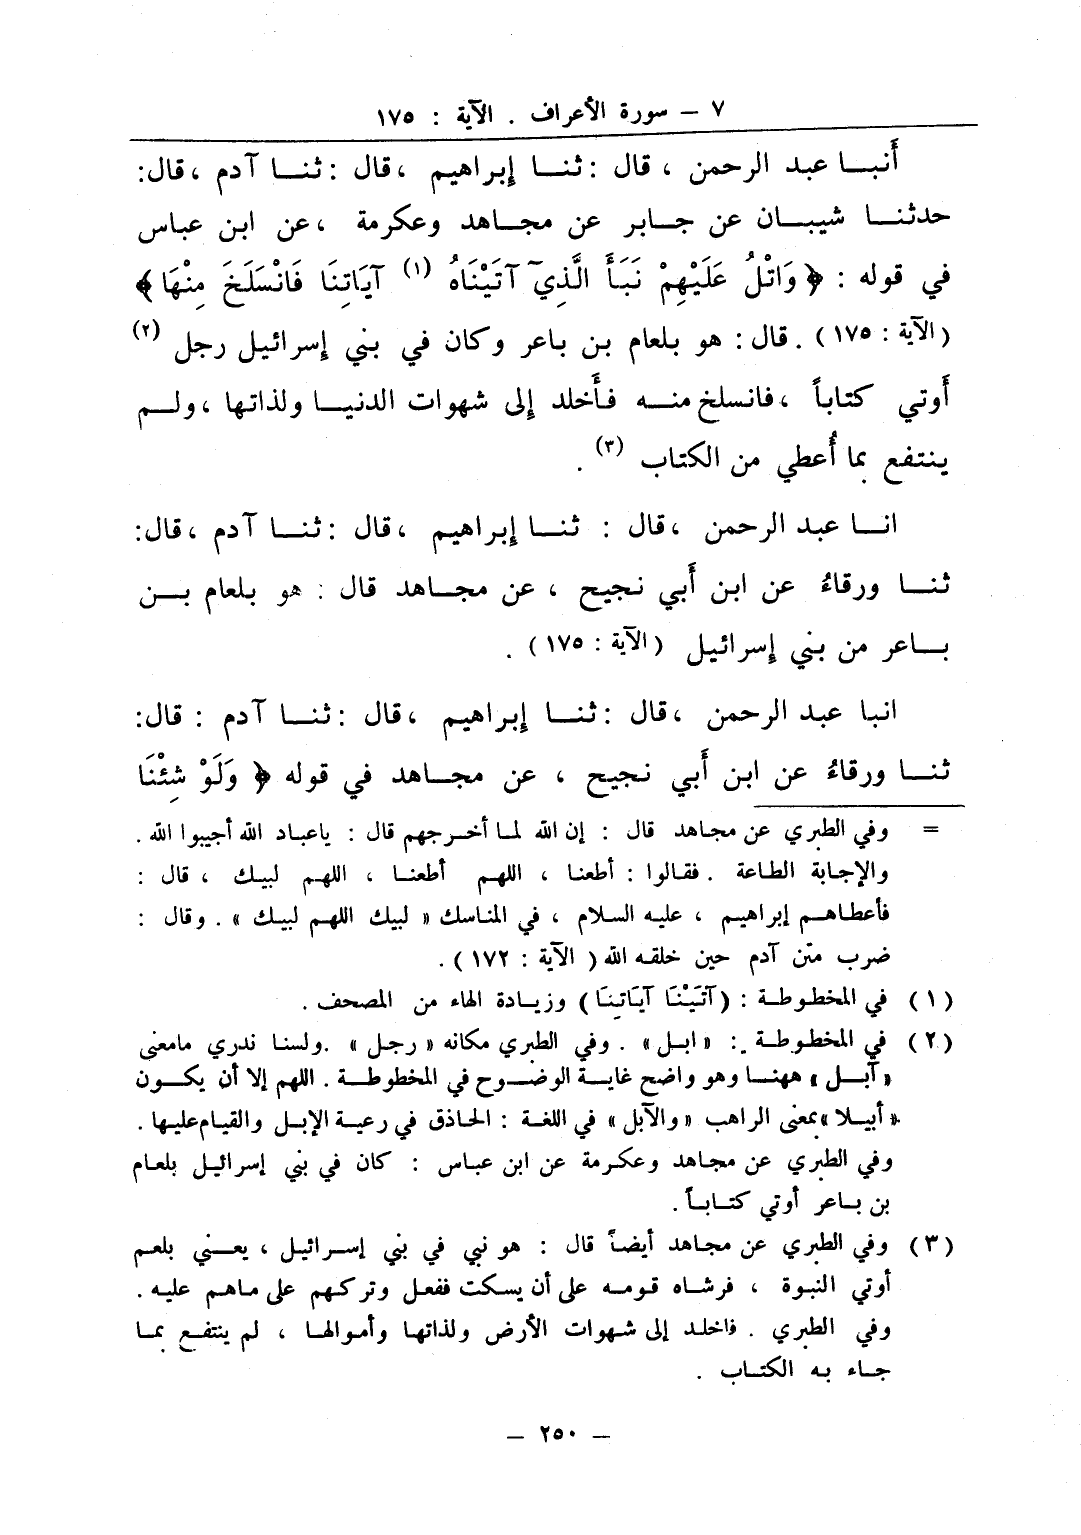 ٧ – سورة الأعراف . الآية : ١٧٥
أَنبا عبد الرحمن ، قال : ثنا إبراهيم ، قال : ثنا آدم ، قال:
حدثنا شيبان عن جابر عن مجاهد وعكرمة ، عن ابن عباس
في قوله : ﴿ وَاتْلُ عَلَيْهِمْ نَبَأَ الَّذِيٓ آتَيْنَاهُ (١) آيَاتِنَا فَانْسَلَخَ مِنْهَا ﴾
(الآية : ١٧٥) . قال : هو بلعام بن باعر وكان في بني إسرائيل رجل (٢)
أُوتي كتاباً ، فانسلخ منه فأَخلد إلى شهوات الدنيا ولذاتها ، ولم
ينتفع بما أُعطي من الكتاب (٣) .
انا عبد الرحمن ، قال : ثنا إبراهيم ، قال : ثنا آدم ، قال:
ثنا ورقاءُ عن ابن أَبي نجيح ، عن مجاهد قال : هو بلعام بن
باعر من بني إسرائيل (الآية : ١٧٥) .
انبا عبد الرحمن ، قال : ثنا إبراهيم ، قال : ثنا آدم : قال:
ثنا ورقاءُ عن ابن أَبي نجيح ، عن مجاهد في قوله ﴿ وَلَوْ شِئْنَا
= وفي الطبري عن مجاهد قال : إن الله لما أخرجهم قال : ياعباد الله أجيبوا الله .
والإجابة الطاعة . فقالوا : أطعنا ، اللهم أطعنا ، اللهم لبيك ، قال :
فأعطاهم إبراهيم ، عليه السلام ، في المناسك « لبيك اللهم لبيك » . وقال :
ضرب متن آدم حين خلقه الله ( الآية : ١٧٢ ) .
(١) في المخطوطة : (آتَيْنَا آيَاتِنَا) وزيادة الهاء من المصحف .
(٢) في المخطوطة : « ابل » . وفي الطبري مكانه « رجل » . ولسنا ندري مامعنى
« آبل » ههنا وهو واضح غاية الوضوح في المخطوطة . اللهم إلا أن يكون
« أبيلا » بمعنى الراهب « والآبل » في اللغة : الحاذق في رعية الإبل والقيام عليها .
وفي الطبري عن مجاهد وعكرمة عن ابن عباس : كان في بني إسرائيل بلعام
بن باعر أوتي كتاباً .
(٣) وفي الطبري عن مجاهد أيضاً قال : هو نبي في بني إسرائيل ، يعني بلعم
أوتي النبوة ، فرشاه قومه على أن يسكت ففعل وتركهم على ماهم عليه .
وفي الطبري . فاخلد إلى شهوات الأرض ولذاتها وأموالها ، لم ينتفع بما
جاء به الكتاب .
– ٢٥٠ –